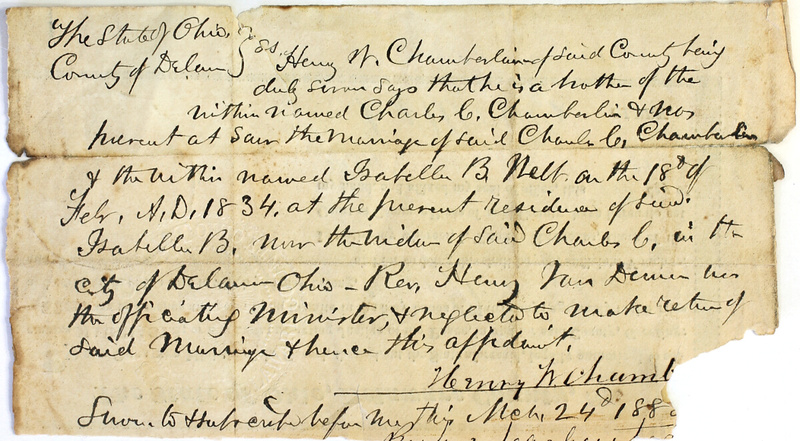 The State of Ohio, } SS.
County of Delaware Henry W. Chamberlin of said County being
duly sworn says that he is a brother of the
within named Charles C. Chamberlin & was
present at & saw the marriage of said Charles C. Chamberlin
& the within named Isabella B. on the 18th of
Feb. A.D. 1834, at the present residence of said
Isabella B. now the widow of said Charles C. in the
city of Delaware Ohio - Rev. Henry Van Deman was
the officiating Minister, & neglected to make return of
said Marriage & hence this affidavit.
Henry W Chamb
Sworn to & subscribed before me this Mch. 24th 188